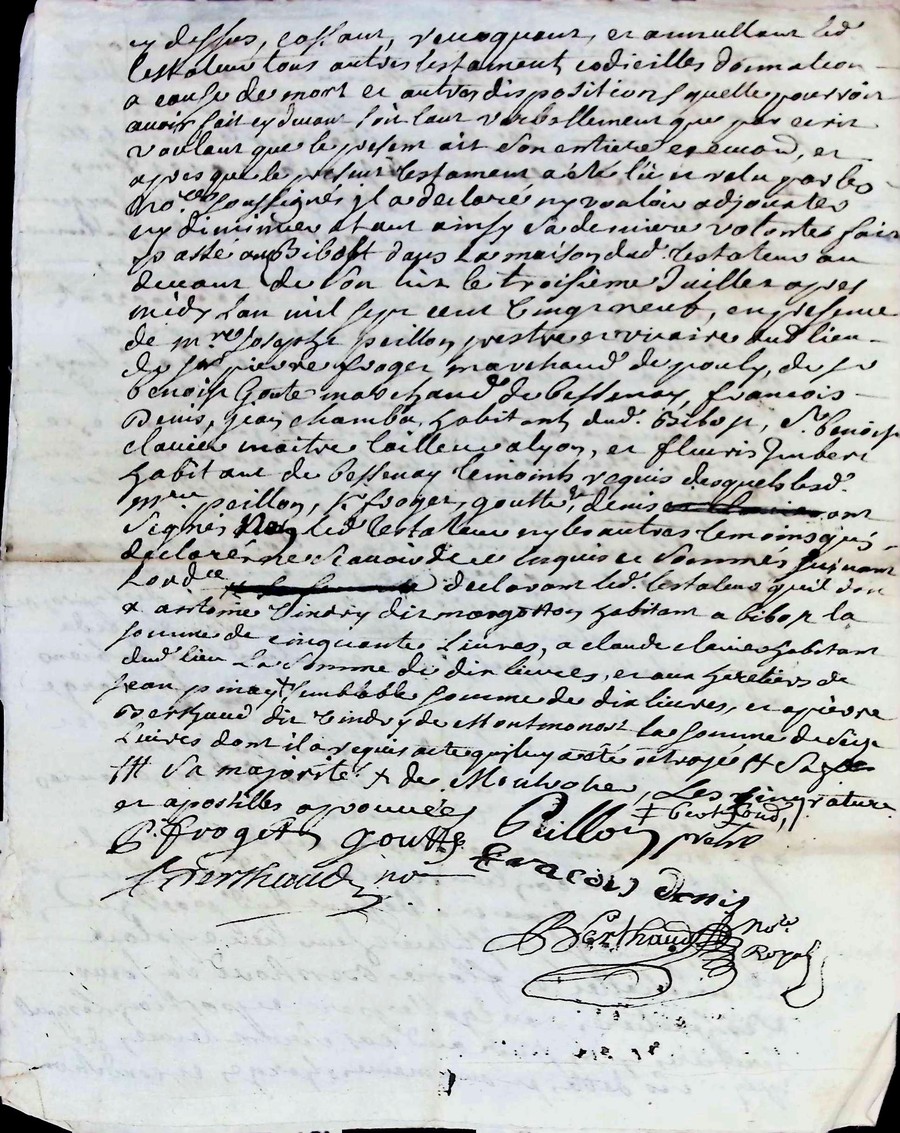 cy dessus, cassant, revoquant, et annullant led.
testateur tous autres testament, codicilles donnation
a cause de mort et autres dispositions quelle pourroit
avoir fait cy devant soit tant verballement que par ecrit
voulant que le present ait son entiere execution, et
apres que le present testament a été lû et relu par les
no.res soussignés jl a declaré ny vouloir adjouster
ny diminuer etant ainsy sa derniere volontés fait
et passé au Bibost dans la maison dud. testateur au
devant de son lit le troisième Juillet apres
midy Lan mil sept cent vingt neuf, en presence
de m.re Joseph peillon prestre et vicaire aud. lieu
de s.r pierre froget marchand de pouly, de s.r
benoist Goute marchand de bessenay, françois
Denis, Jean chamba, habitant dud. Bibost, s.r benoist
clavier maitre tailleur a lyon, et fleuris Jmbert
habitant de bessenay temoints requis desquels led.
m.re peillon, s.r froget, goutte, denis ont
Signés led. testateur ny les autres temoins qui
declaré ne scavoir de ce enquis et sommés suivant
Lord.ce declarant led. testateur quil donne
x antoine Vindry dit margotton habitant a bibost la
somme de cinquante Livres, a claude clavier habitant
dud. lieu La somme de dix livres, et aux heretiers de
Jean pinay semblable somme de dix livres, et a pierre
Berthaud dit vindry de Montmonost la somme de
Livres dont il a requis acte qui luy a été octroyé
sa majorité x de Les rature
et apostilles aprouvées Berthaud,
P. froget goutte Peillon pretre
Berthaud no.re francois denis
Berthaud No.re
Royal